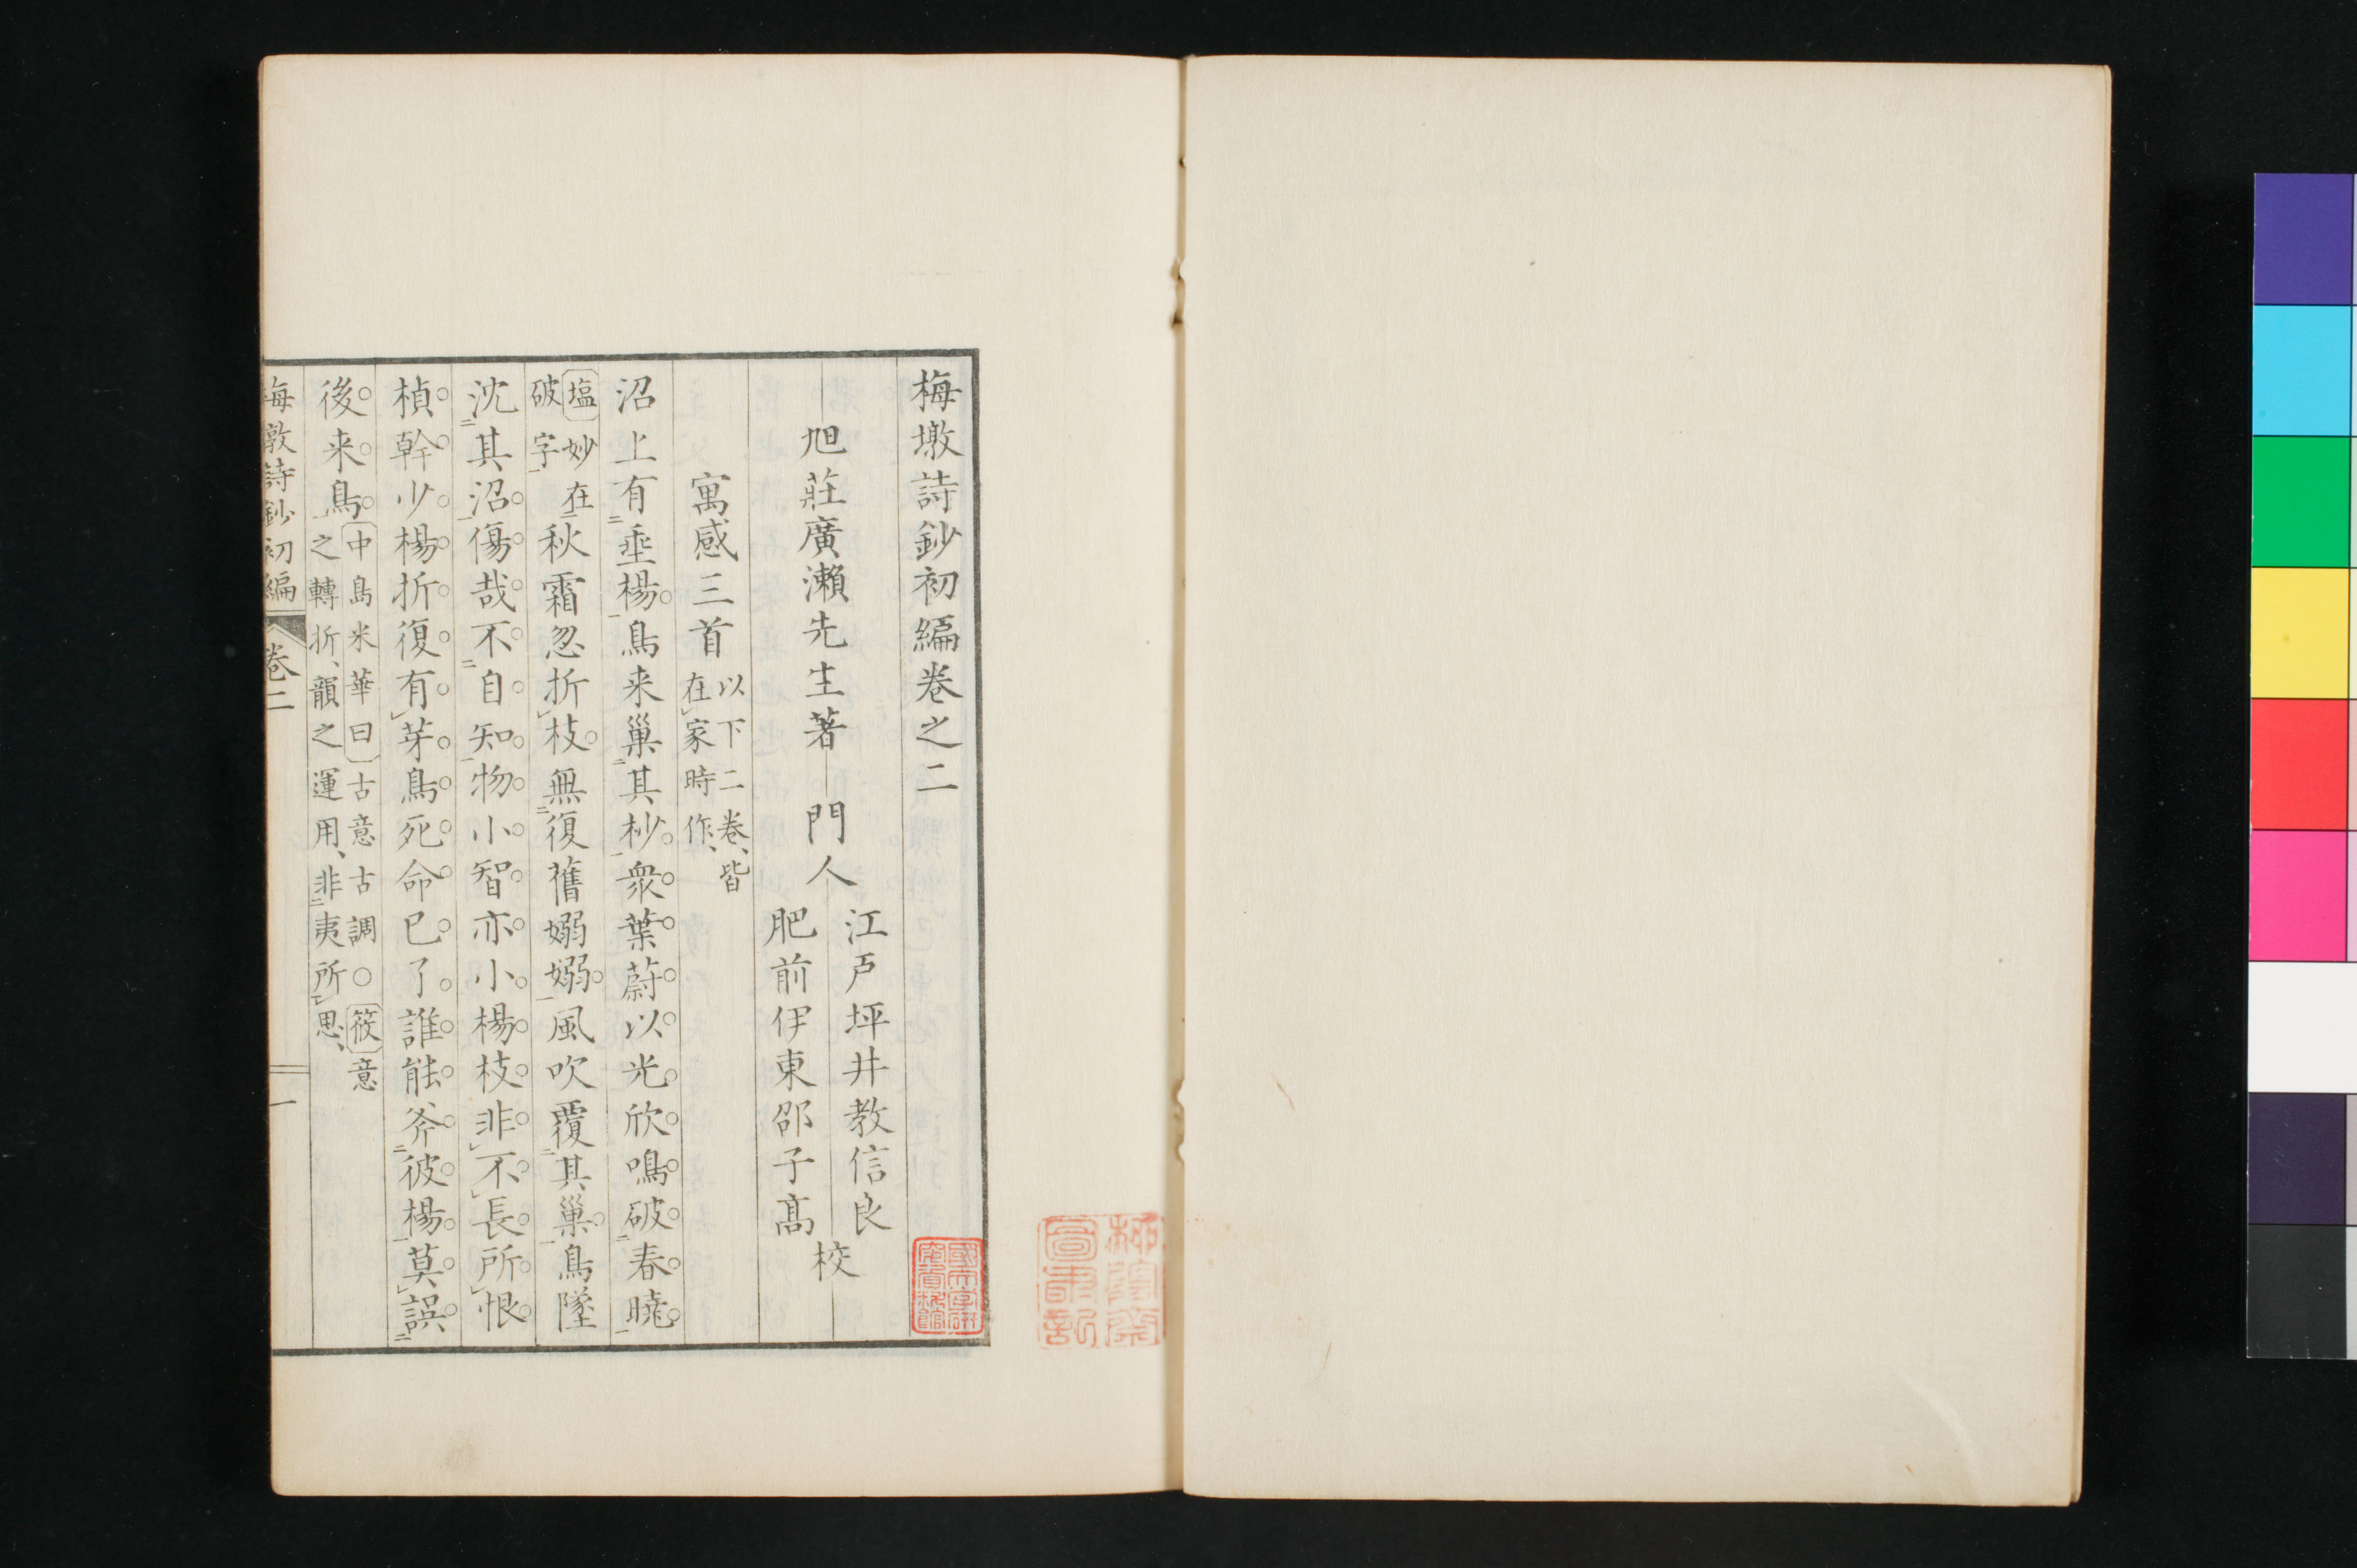 梅墩詩鈔初編卷之二
旭莊廣瀬先生著 門人
江戸坪井教信良
肥前伊東邵子髙
校
寓感三首
以下二卷、皆
在家時作、
沼上有垂楊鳥来巢其杪衆葉蔚以光欣鳴破春曉
塩妙在
破字
秋霜忽折枝無復舊嫋嫋風吹覆其巢鳥墜
沈其沼傷哉不自知物小智亦小楊枝非不長所恨
楨幹少楊折復有芽鳥死命已了誰能斧彼楊莫誤
後来鳥
中島米華曰古意古調〇筱意
之轉折、韻之運用、非夷所思、
梅墩詩鈔初編 卷二 一